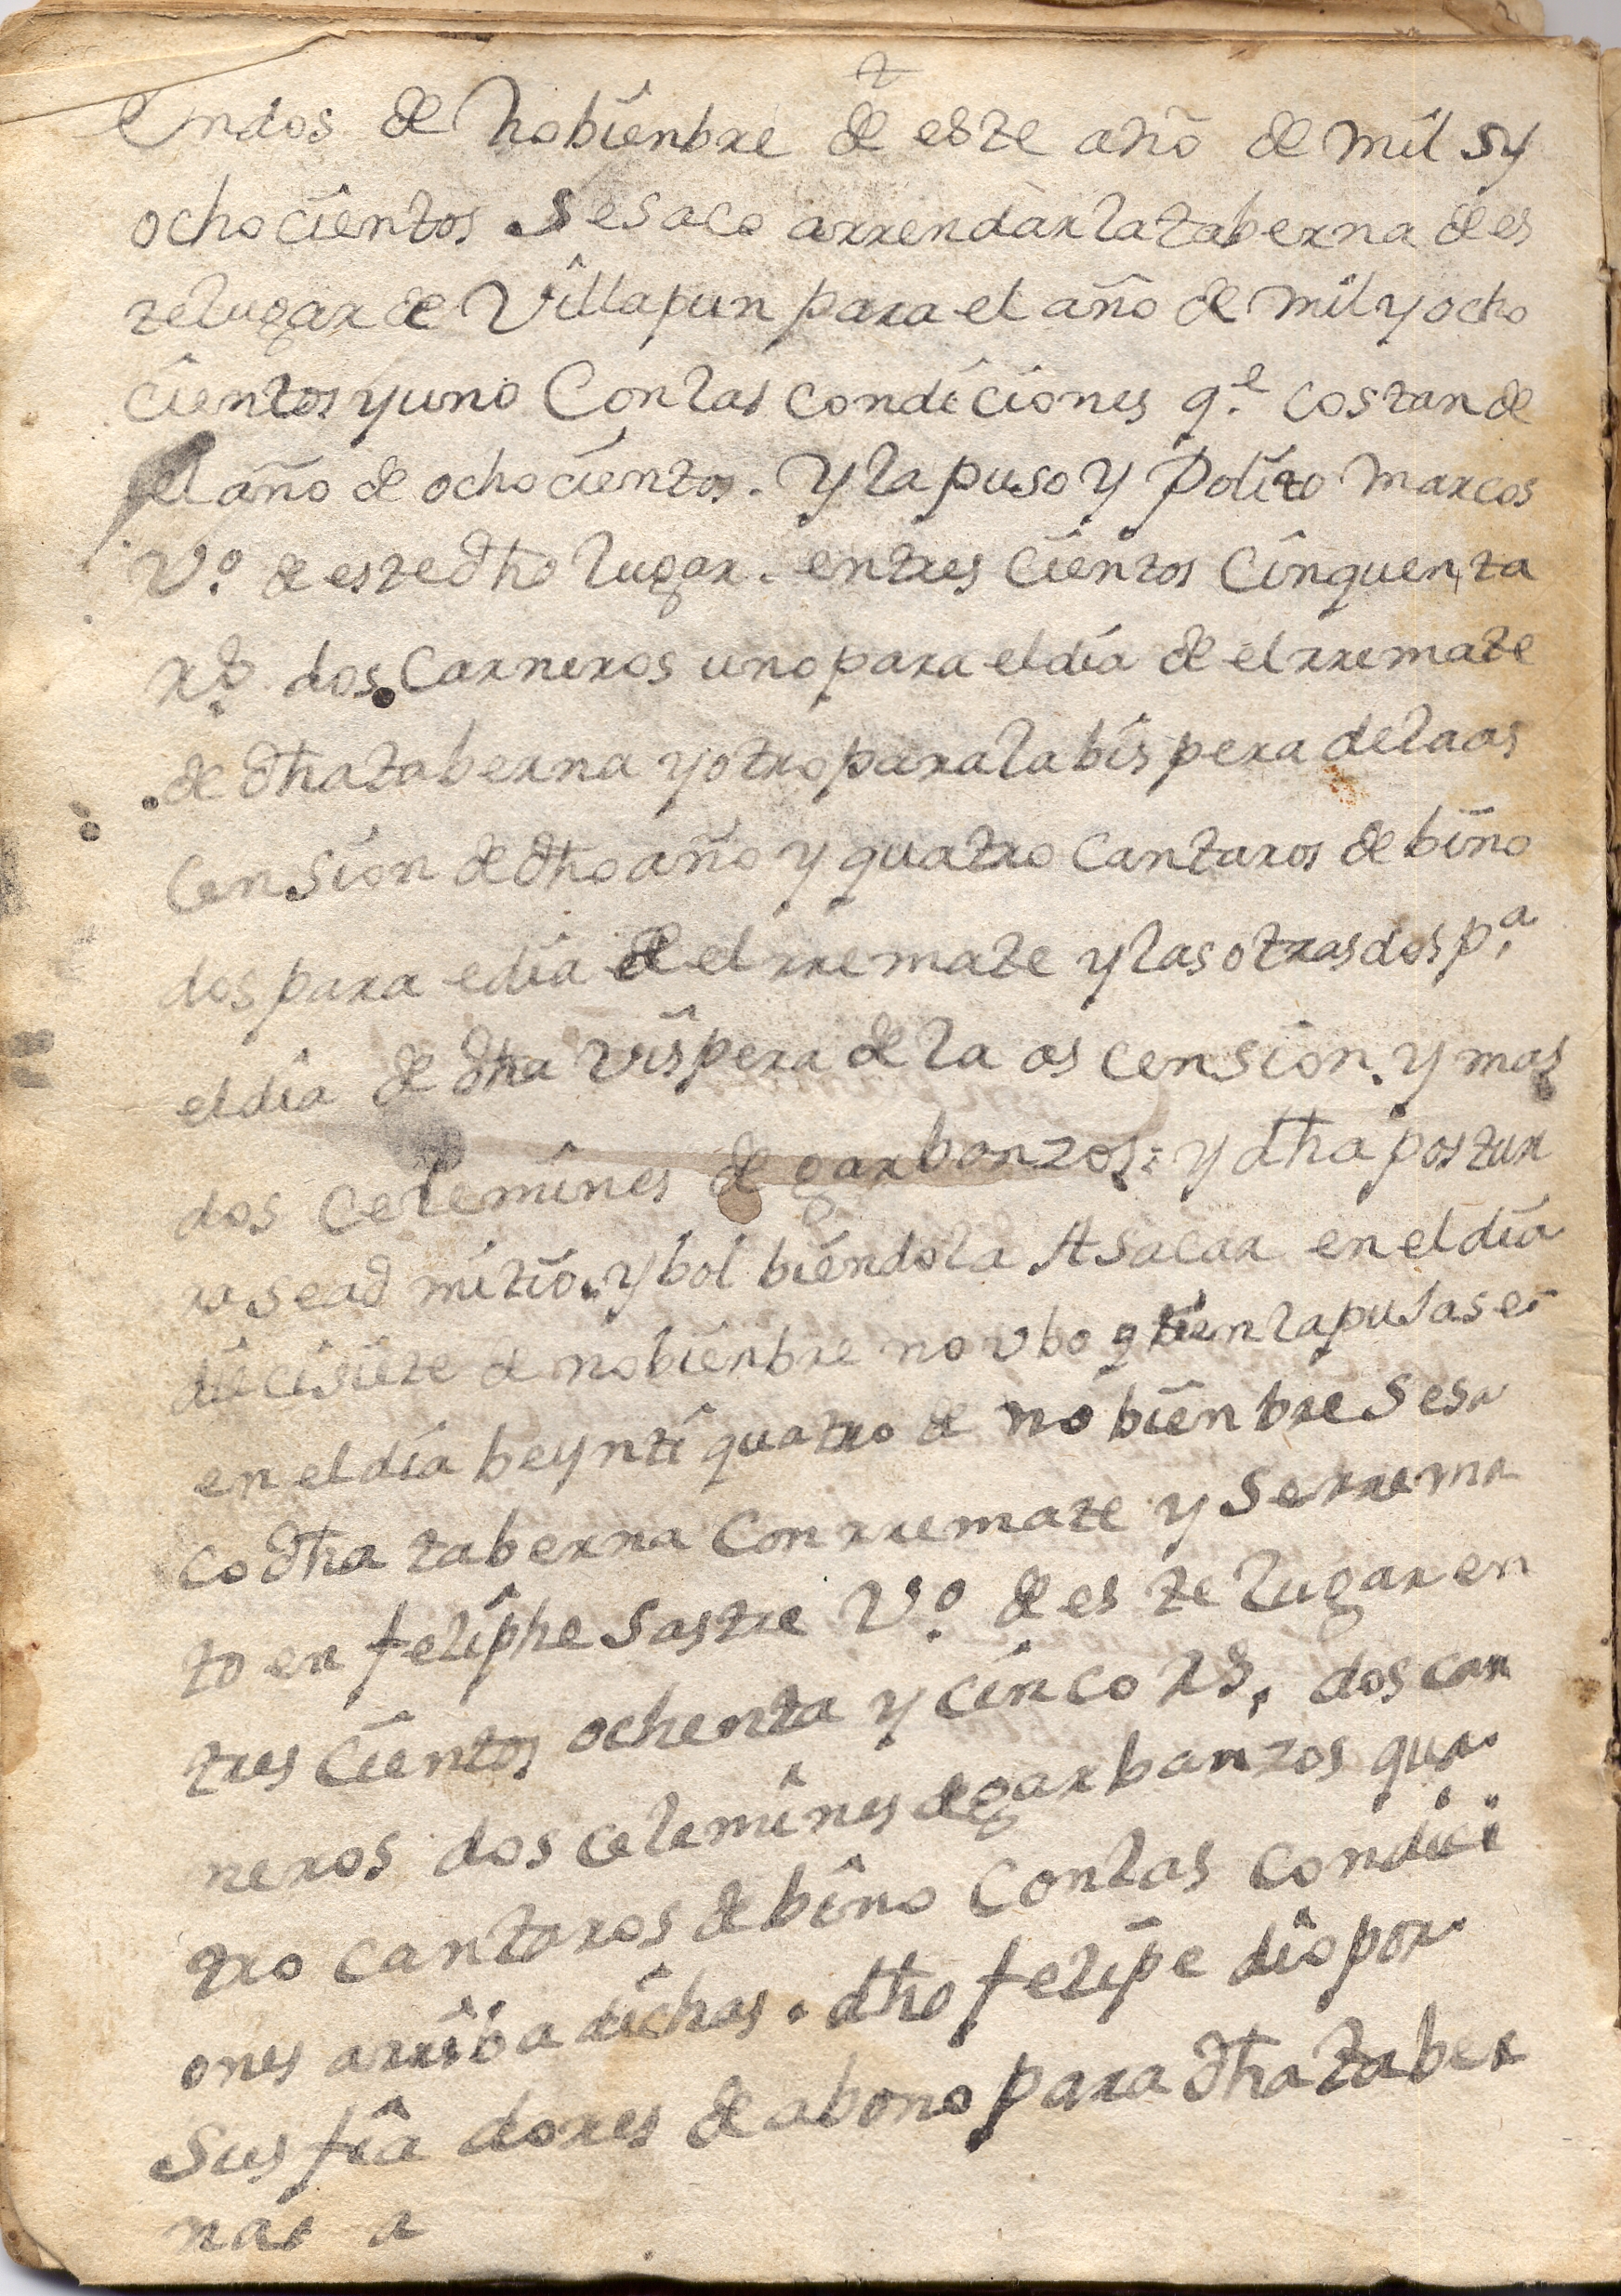 Endos de Nobienbre de este año de mil sy
ochocientos se saco arrendar la taberna de es
te lugar de Villapun para el año de mil y ocho
cientos y uno Con las condiciones q.e costan de
el año de ochocientos. Y la puso Y Polito Marcos
V.o de este dho lugar. en tres cientos Cinquenta
rs. dos Carneros uno para el dia de el rremate
de dha taberna y otro para la bispera de la as
cension de dho año y quatro cantaros de bino
dos para edia de el rremate y las otras dos p.a
el dia de dha vispera de la as cension. y mas
dos celemines de garbanzos: y dha postur
ra se ad mitio. y bol biendola A sacar en el dia
diecisiete de nobienbre no vbo quien la pujase
en el dia beynti quatro de nobienbre se sa
co dha taberna Con rremate y se rrema
to en feliphe Sastre V.o de es te lugar en
tres Cientos ochenta y cinco rs. dos car
neros dos celemines de garbanzos qua
tro cantaros de bino con las condici
ones arriba dichas. dho felipe dio por
Sus fia dores de abono para dha taber
na a